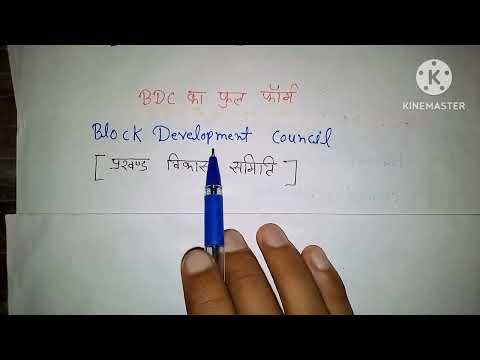 BDC का फुल फॉर्म
Block Development Council
[ प्रखण्ड विकास समिति ]
KINEMASTER